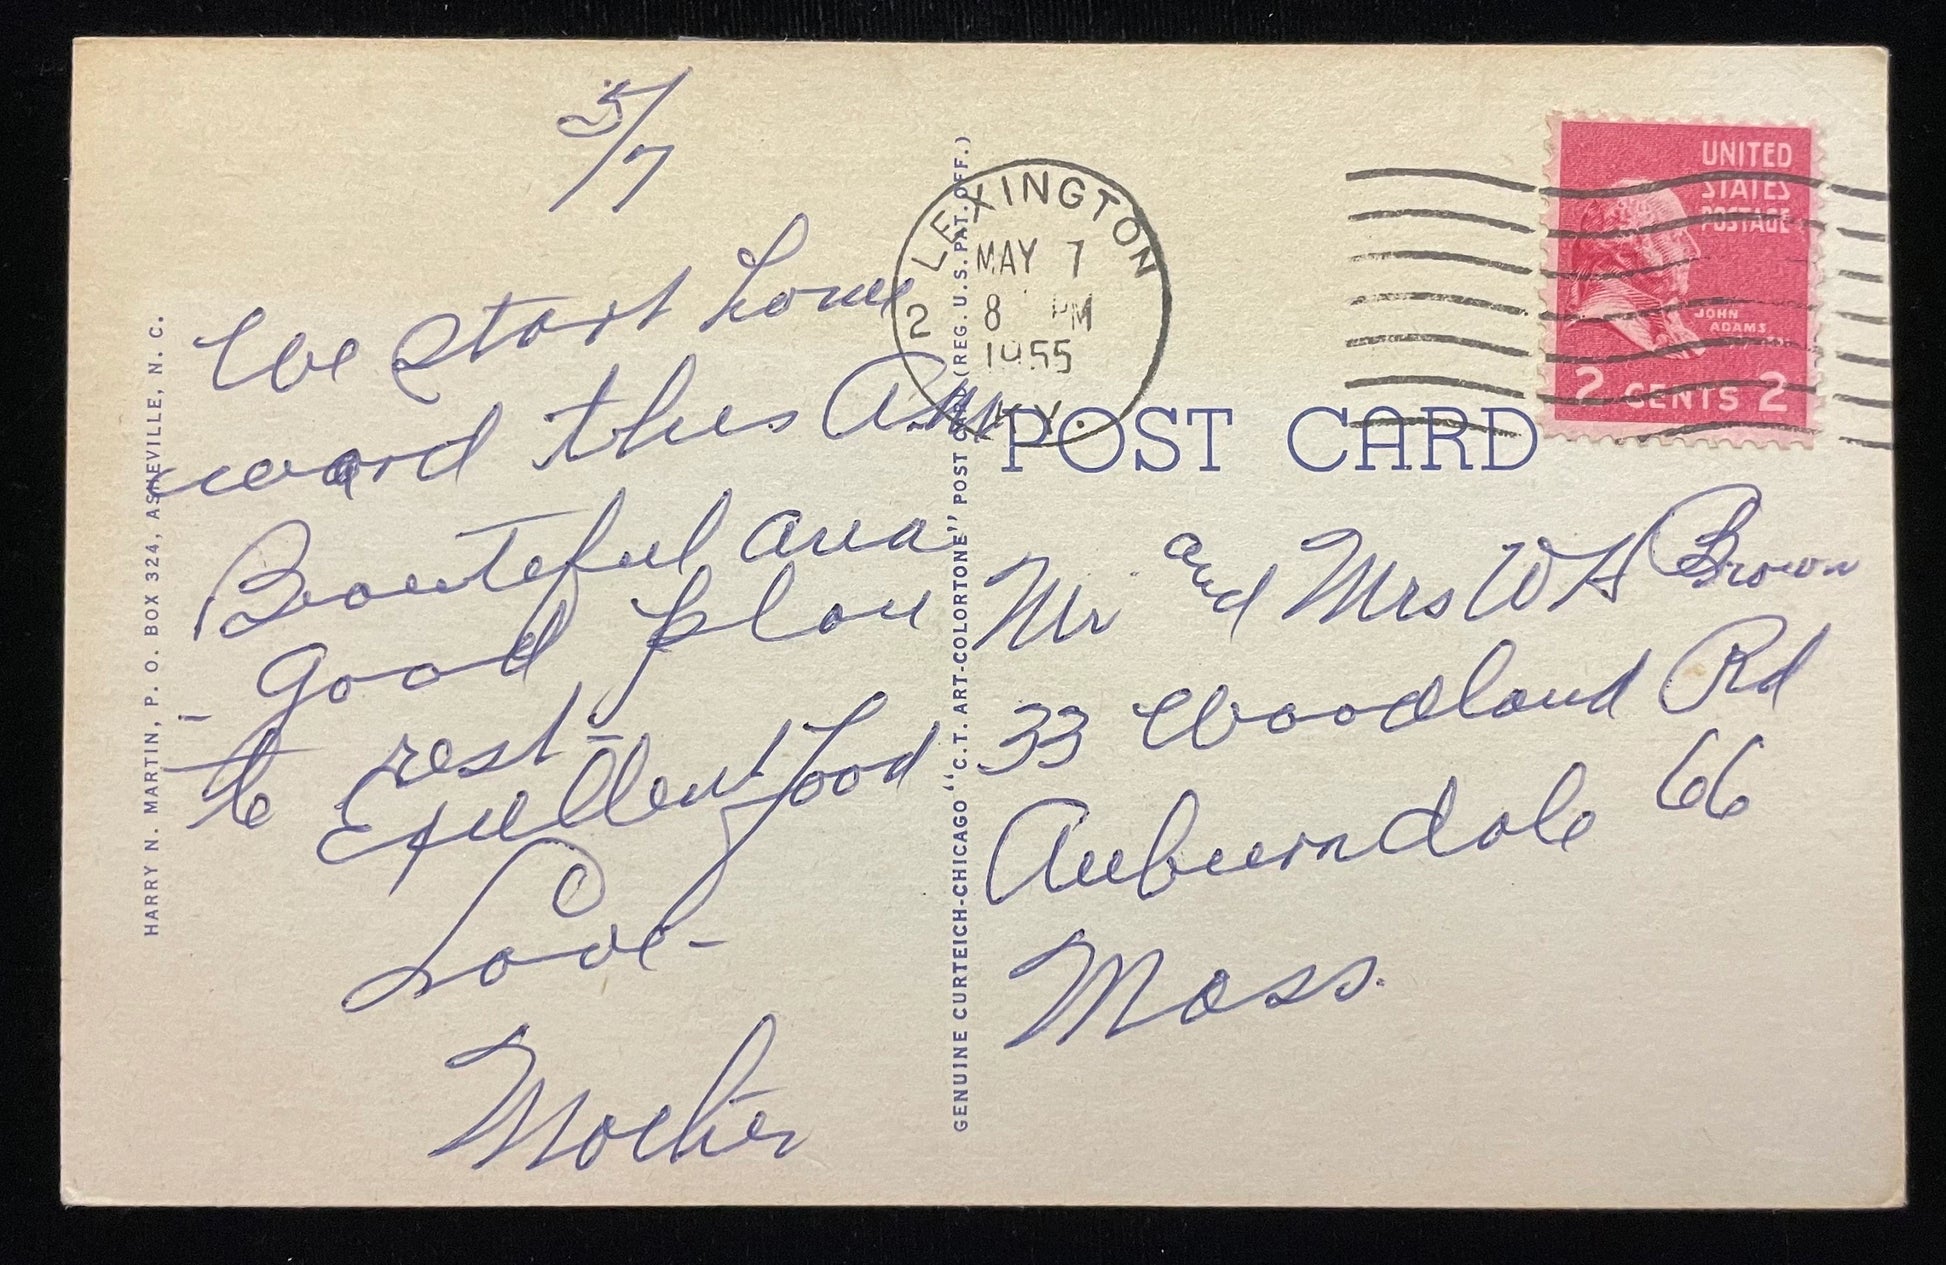 HARRY N. MARTIN, P. O. BOX 324, ASHEVILLE, N. C.
5/7
We start home
ward this A.M.
Beautiful area
- good plan
to rest -
Excellent food
Love -
Mother
GENUINE CURTEICH-CHICAGO "C.T. ART-COLORTONE" POST CARD (REG. U.S. PAT. OFF.)
LEXINGTON
MAY 7
2 8 PM
1955
KY.
UNITED
STATES
POSTAGE
JOHN
ADAMS
2 CENTS 2
POST CARD
Mr and Mrs W H Brown
33 Woodland Rd
Auburndale 66
Mass.